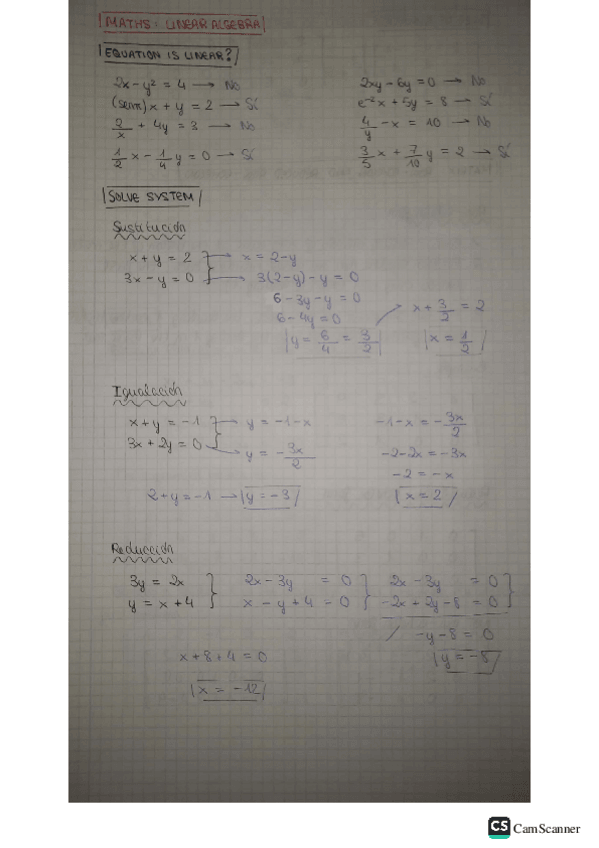 MATHS: LINEAR ALGEBRA
EQUATION IS LINEAR?
2x - y² = 4 → No
2xy - 6y = 0 → No
(senπ)x + y = 2 → Sí
e⁻²x + 5y = 8 → Sí
2/x + 4y = 3 → No
4/y - x = 10 → No
1/2 x - 1/4 y = 0 → Sí
3/5 x + 7/10 y = 2 → Sí
SOLVE SYSTEM
Sustitución
x + y = 2 } → x = 2 - y
3x - y = 0 } → 3(2 - y) - y = 0
6 - 3y - y = 0
6 - 4y = 0
y = 6/4 = 3/2
x + 3/2 = 2
x = 1/2
Igualación
x + y = -1 } → y = -1 - x
3x + 2y = 0 } → y = - 3x/2
-1 - x = - 3x/2
-2 - 2x = -3x
-2 = -x
x = 2
2 + y = -1 → y = -3
Reducción
3y = 2x } 2x - 3y = 0 } 2x - 3y = 0 }
y = x + 4 } x - y + 4 = 0 } -2x + 2y - 8 = 0 }
/ -y - 8 = 0
y = -8
x + 8 + 4 = 0
x = -12
CS CamScanner